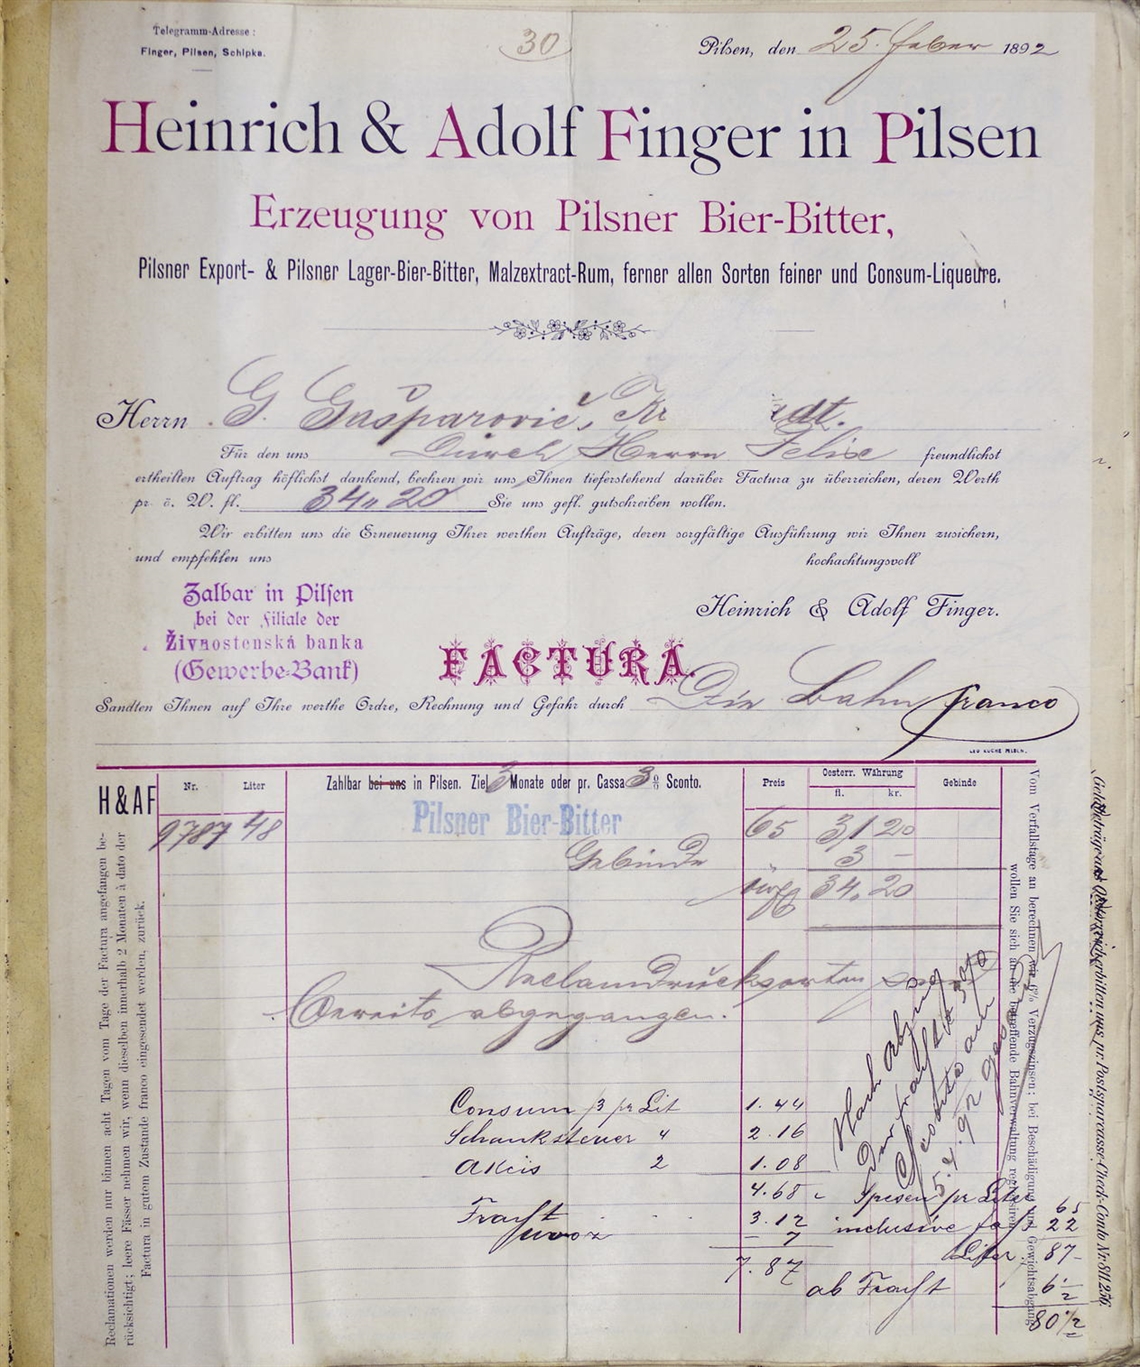 Telegramm-Adresse:
Finger, Pilsen, Schipka.
30
Pilsen, den 25. Feber 1892
Heinrich & Adolf Finger in Pilsen
Erzeugung von Pilsner Bier-Bitter,
Pilsner Export- & Pilsner Lager-Bier-Bitter, Malzextract-Rum, ferner allen Sorten feiner und Consum-Liqueure.
Herrn G. Gašparovič, Kr dt.
Für den uns Durch Herrn Felix freundlichst
ertheilten Auftrag höflichst dankend, beehren wir uns Ihnen tieferstehend darüber Factura zu überreichen, deren Werth
pr. ö. W. fl. 34„20 Sie uns gefl. gutschreiben wollen.
Wir erbitten uns die Erneuerung Ihrer werthen Aufträge, deren sorgfältige Ausführung wir Ihnen zusichern,
und empfehlen uns
hochachtungsvoll
Heinrich & Adolf Finger.
Zalbar in Pilsen
bei der Filiale der
Živnostenská banka
(Gewerbe-Bank)
FACTURA.
Sandten Ihnen auf Ihre werthe Ordre, Rechnung und Gefahr durch Die Bahn franco
H & AF
Nr. Liter
Zahlbar bei uns in Pilsen. Ziel 3 Monate oder pr. Cassa 3 % Sconto.
Preis
Oesterr. Währung
fl. kr.
Gebinde
9787 48 Pilsner Bier-Bitter 65 31 20
Gebinde 3 –
34. 20
Reclamdrucksorten
bereits abgegangen.
Nach
5.4.92
Consum 3 pr Lit 1.44
Schanksteuer 4 2.16
Akcis 2 1.08
4.68 Spesen pr Liter 65
Fracht 3.12 inclusive 22
– 7
Liter 87–
7.87
ab Fracht 6½
80½
Reclamationen werden nur binnen acht Tagen vom Tage der Factura angefangen be-
rücksichtigt; leere Fässer nehmen wir, wenn dieselben innerhalb 2 Monaten à dato der
Factura in gutem Zustande franco eingesendet werden, zurück.
Vom Verfallstage an berechnen wir 6% Verzugszinsen; bei Beschädigung Gewichtsabgang
wollen Sie sich an die betreffende Bahnverwaltung
Geldbeträge erbitten uns pr. Postsparcasse-Check-Conto Nr. 811.256.